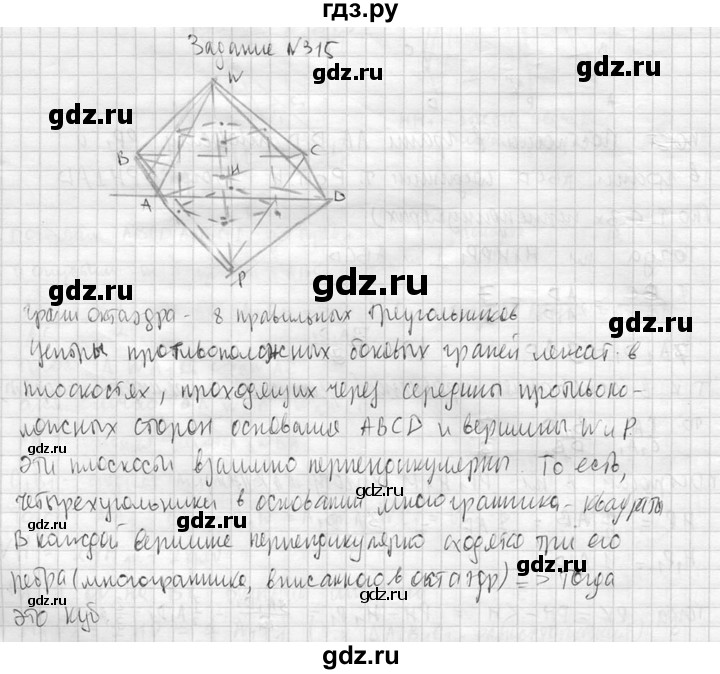 гдз.ру
Задание №315
W
gdz.ru
gdz.ru
gdz.ru
B
C
H
gdz.ru
A
D
gdz.ru
gdz.ru
P
gdz.ru
грани октаэдра - 8 правильных треугольников
gdz.ru
Центры противоположных боковых граней лежат в
gdz.ru
gdz.ru
плоскостях, проходящих через середины противопо-
gdz.ru
ложных сторон основания ABCD и вершины W и P.
gdz.ru
gdz.ru
Эти плоскости взаимно перпендикулярны. То есть,
gdz.ru
четырехугольники в основании многогранника - квадраты
gdz.ru
gdz.ru
В каждой вершине перпендикулярно сходятся три его
gdz.ru
ребра (многогранника, вписанного в октаэдр) => Тогда
gdz.ru
gdz.ru
это куб.
gdz.ru